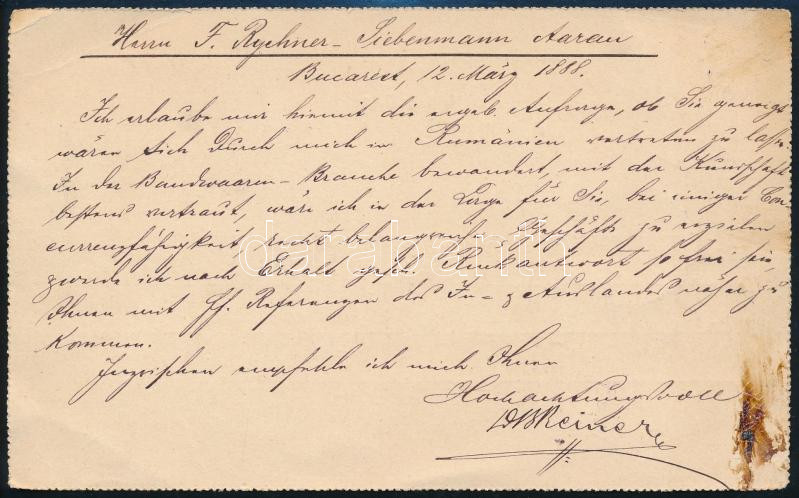 Herrn F. Rychner-Siebenmann Aarau
Bucarest, 12. März 1888.
Ich erlaube mir hiemit die ergeb. Anfrage, ob Sie geneigt
wären sich durch mich in Rumänien vertreten zu lassen.
In der Bandwaaren-Branche bewandert, mit der Kundschaft
bestens vertraut, wäre ich in der Lage für Sie, bei einiger Con
currenzfähigkeit, recht belangreiche Geschäfte zu erzielen
& werde ich nach Erhalt gefl. Rückantwort so frei sein,
Ihnen mit ff. Referenzen des In- & Auslandes näher zu
kommen.
Inzwischen empfehle ich mich Ihnen
Hochachtungsvoll
Reiner
darabanth